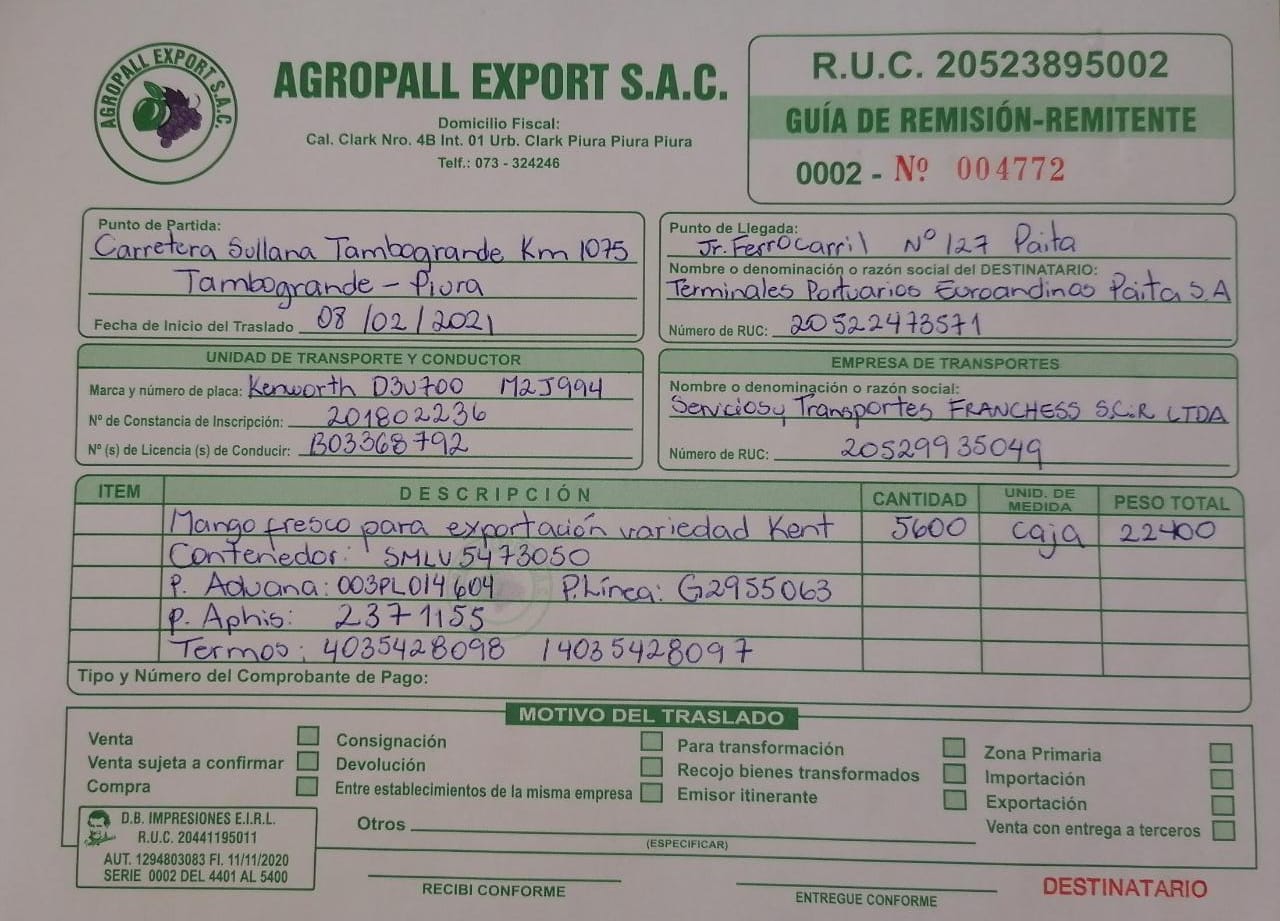 AGROPALL EXPORT S.A.C.
AGROPALL EXPORT S.A.C.
Domicilio Fiscal:
Cal. Clark Nro. 4B Int. 01 Urb. Clark Piura Piura Piura
Telf.: 073 - 324246
R.U.C. 20523895002
GUÍA DE REMISIÓN-REMITENTE
0002 - Nº 004772
Punto de Partida:
Carretera Sullana Tambogrande Km 1075
Tambogrande - Piura
Fecha de Inicio del Traslado 08 / 02 / 2021
Punto de Llegada:
Jr. Ferrocarril Nº 127 Paita
Nombre o denominación o razón social del DESTINATARIO:
Terminales Portuarios Euroandinos Paita S.A
Número de RUC: 20522473571
UNIDAD DE TRANSPORTE Y CONDUCTOR
Marca y número de placa: Kenworth D3U700 M2J994
Nº de Constancia de Inscripción: 201802236
Nº (s) de Licencia (s) de Conducir: B03368792
EMPRESA DE TRANSPORTES
Nombre o denominación o razón social:
Servicios y Transportes FRANCHESS S.C.R LTDA
Número de RUC: 20529935049
ITEM DESCRIPCIÓN CANTIDAD UNID. DE MEDIDA PESO TOTAL
Mango fresco para exportación variedad Kent 5600 caja 22400
Contenedor: SMLU5473050
P. Aduana: 003PL014604 P.Línea: G2955063
P. Aphis: 2371155
Termos: 4035428098 / 4035428097
Tipo y Número del Comprobante de Pago:
MOTIVO DEL TRASLADO
Venta
Venta sujeta a confirmar
Compra
Consignación
Devolución
Entre establecimientos de la misma empresa
Para transformación
Recojo bienes transformados
Emisor itinerante
Zona Primaria
Importación
Exportación
Venta con entrega a terceros
Otros
(ESPECIFICAR)
D.B. IMPRESIONES E.I.R.L.
R.U.C. 20441195011
AUT. 1294803083 FI. 11/11/2020
SERIE 0002 DEL 4401 AL 5400
RECIBI CONFORME
ENTREGUE CONFORME
DESTINATARIO